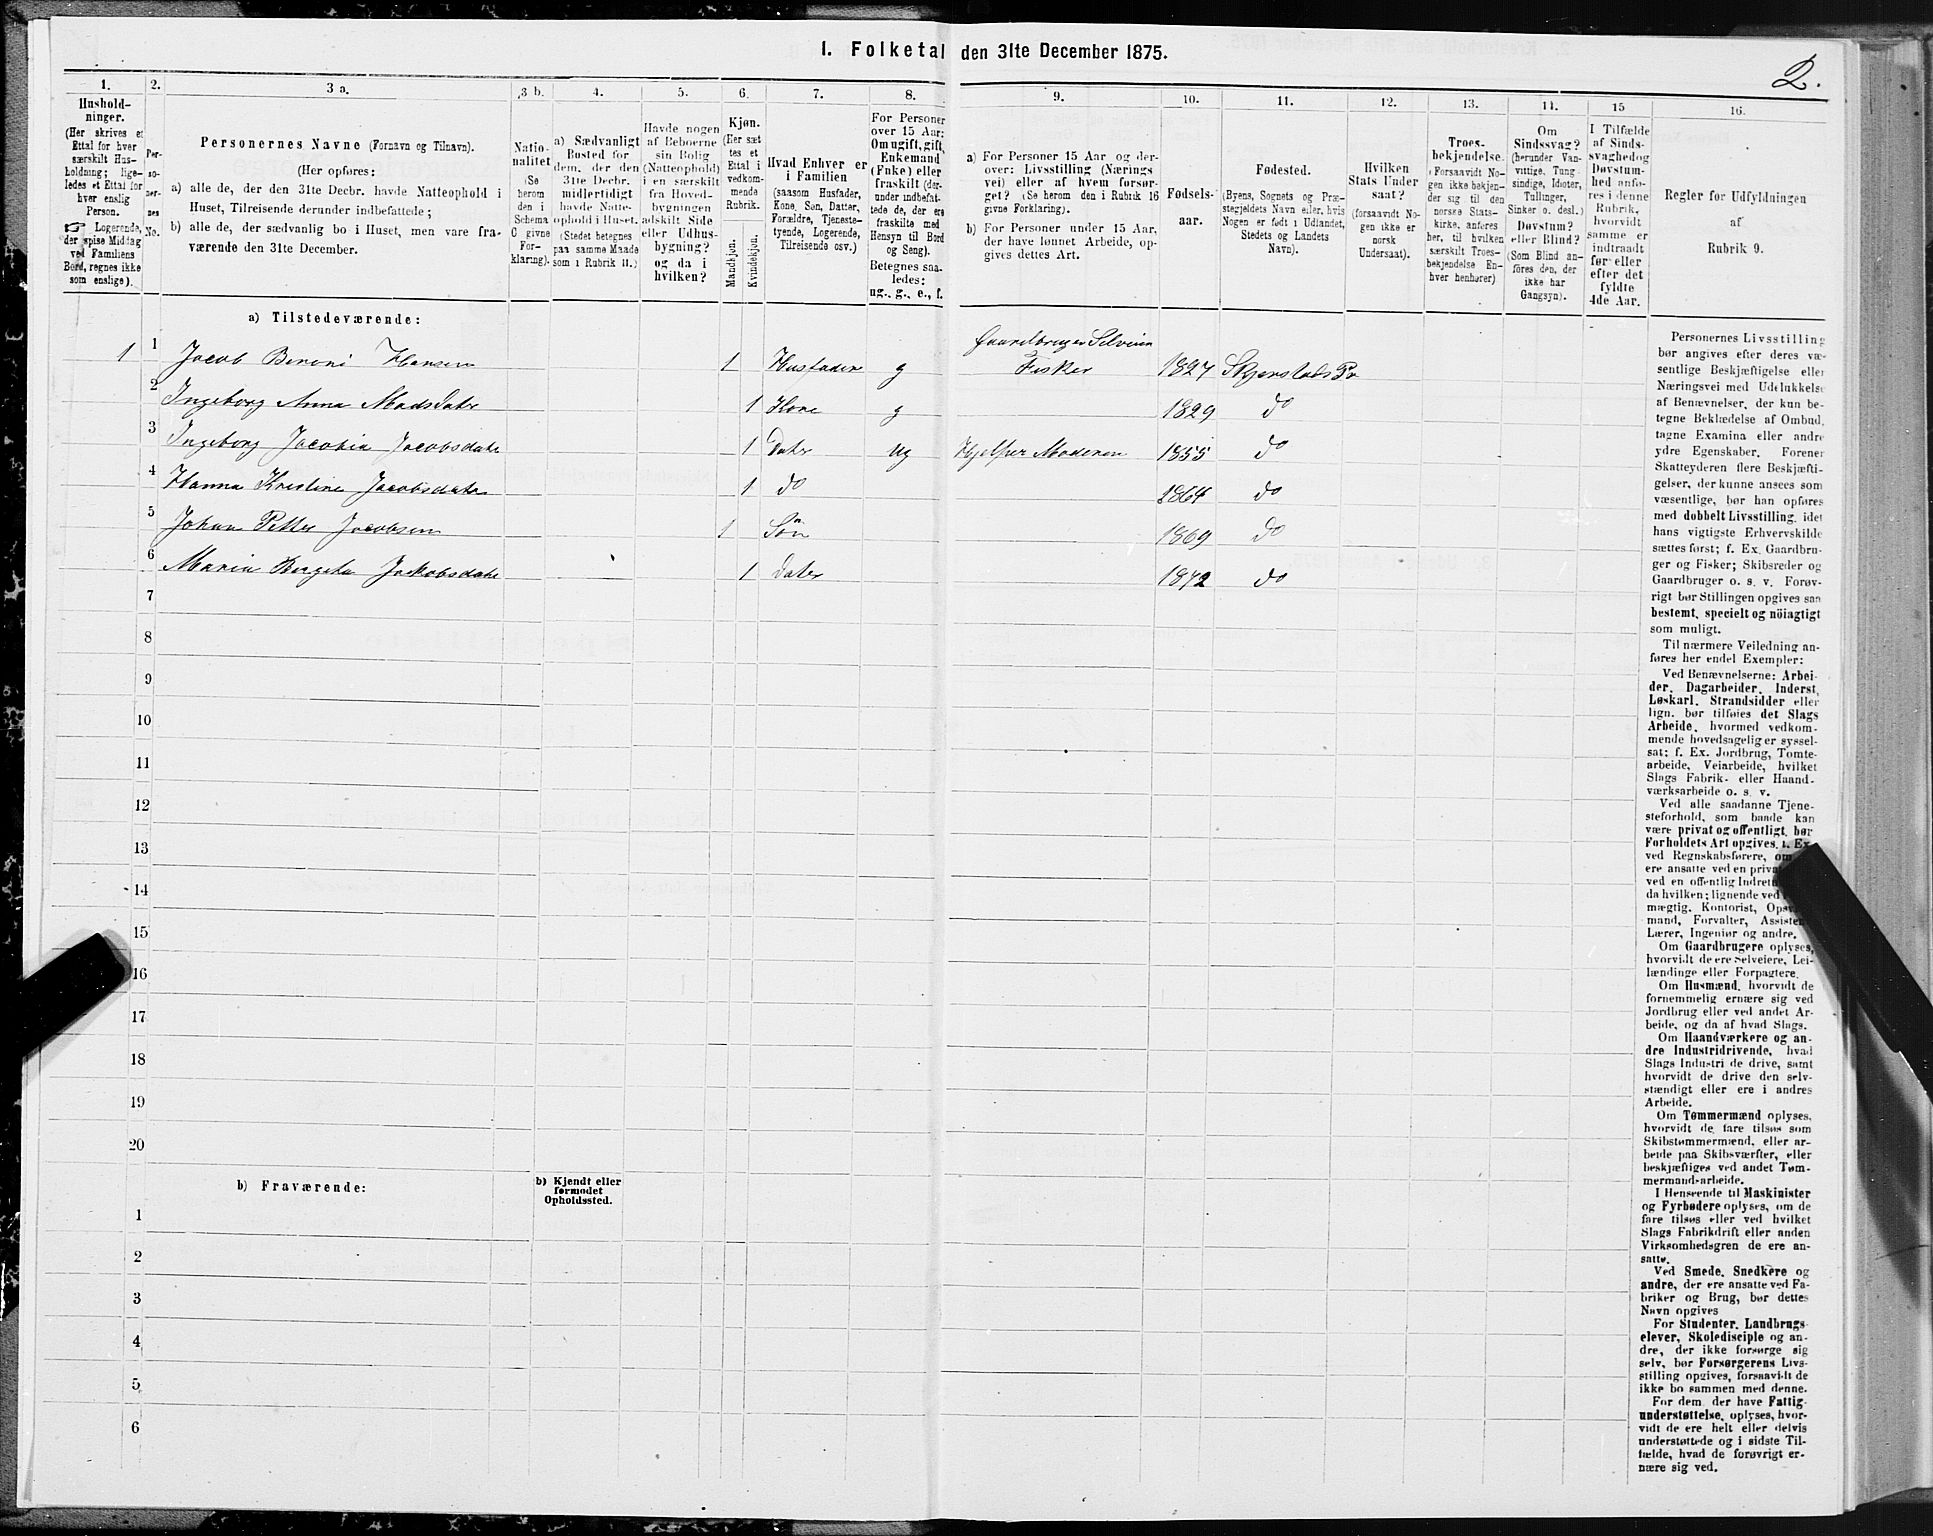 1. Folketal den 31te December 1875.
2.
1.
Hushold-
ninger.
(Her skrives et
Ettal for hver
særskilt Hus-
holdning; lige-
ledes et Ettal for
hver enslig
Person.
Logerende,
der spise Middag
ved Familiens
Bord, regnes ikke
som enslige).
2.
Per-
so-
ner-
nes
No.
3 a.
Personernes Navne (Fornavn og Tilnavn).
(Her opføres:
a) alle de, der den 31te Decbr. havde Natteophold i
Huset, Tilreisende derunder indbefattede;
b) alle de, der sædvanlig bo i Huset, men vare fra-
værende den 31te December.
3 b.
Natio-
nalitet
(Se
herom
den i
Schema
C givne
For-
klaring).
4.
a) Sædvanligt
Bosted for
dem, der den
31te Decbr.
midlertidigt
havde Natte-
ophold i Huset.
(Stedet betegnes
paa samme Maade
som i Rubrik 11.)
5.
Havde nogen
af Beboerne
sin Bolig
(Natteophold)
i en særskilt
fra Hoved-
bygningen
adskilt Side
eller Udhus-
bygning?
og da i
hvilken?
6.
Kjøn.
(Her sæt
tes et
Ettal i
vedkom-
mende
Rubrik.
Mandkjøn.
Kvindekjøn.
7.
Hvad Enhver er
i Familien
(saasom Husfader,
Kone, Søn, Datter,
Forældre, Tjeneste-
tyende, Logerende,
Tilreisende osv.)
8.
For Personer
over 15 Aar:
Om ugift, gift,
Enkemand
(Enke) eller
fraskilt (der-
under indbefat-
tede de, der ere
fraskilte med
Hensyn til Bord
og Seng).
Betegnes saa-
ledes:
ug., g., e., f.
9.
a) For Personer 15 Aar og der-
over: Livsstilling (Nærings
vei) eller af hvem forsør-
get? (Se herom den i Rubrik 16
givne Forklaring).
b) For Personer under 15 Aar,
der have lønnet Arbeide, op-
gives dettes Art.
10.
Fødsels-
aar.
11.
Fødested.
(Byens, Sognets og Præ-
stegjeldets Navn eller, hvis
Nogen er født i Udlandet,
Stedets og Landets
Navn).
12.
Hvilken
Stats Under
saat?
(forsaavidt No-
gen ikke er
norsk
Undersaat).
13.
Troes-
bekjendelse
(Forsaavidt No-
gen ikke bekjen-
der sig til den
norske Stats-
kirke, anføres
her, til hvilken
særskilt Troes-
bekjendelse En-
hver henhører)
14.
Om
Sindssvag?
(herunder Van-
vittige, Tung
sindige, Idioter,
Tullinger,
Sinker o. desl.)
Døvstum?
eller Blind?
(Som Blind an-
føres den, der
ikke har
Gangsyn).
15
I Tilfælde
af Sinds-
svaghed og
Døvstum-
hed anfø-
res i denne
Rubrik,
hvorvidt
samme er
indtraadt
før eller
efter det
fyldte
4de Aar.
16.
Regler for Udfyldningen
af
Rubrik 9.
a) Tilstedeværende:
Gaardbruger Selveier
1 1 Jacob Benoni Hansen 1 Husfader g Fisker 1827 Skjerstads Pr
2 Ingeborg Anna Madsdatr 1 Kone g 1829 do
3 Ingeborg Jacobia Jacobsdatr 1 Datr ug Hjelper Moderen 1855 do
4 Hanna Kristine Jacobsdatr 1 do 1864 do
5 Johan Petter Jacobsen 1 Søn 1869 do
6 Maria Bergeta Jackobsdatr 1 Datr 1872 do
7
8
9
10
11
12
13
14
15
16
17
18
19
20
b) Fraværende:
b) Kjendt eller
formodet
Opholdssted.
1
2
3
4
5
6
Personernes Livsstilling
bør angives efter deres væ-
sentlige Beskjæftigelse eller
Næringsvei med Udelukkelse
af Benævnelser, der kun be-
tegne Beklædelse af Ombud,
tagne Examina eller andre
ydre Egenskaber. Forener
Skatteyderen flere Beskjæfti-
gelser, der kunne ansees som
væsentlige, bør han opføres
med dobbelt Livsstilling, idet
hans vigtigste Erhvervskilde
sættes først; f. Ex. Gaardbru-
ger og Fisker; Skibsreder og
Gaardbruger o. s. v. Forøv-
rigt bør Stillingen opgives saa
bestemt, specielt og nöiagtigt
som muligt.
Til nærmere Veiledning an-
føres her endel Exempler:
Ved Benævnelserne: Arbei-
der, Dagarbeider, Inderst,
Løskarl, Strandsidder eller
lign. bør tilføies det Slags
Arbeide, hvormed vedkom-
mende hovedsagelig er syssel-
sat; f. Ex. Jordbrug, Tomte-
arbeide, Veiarbeide, hvilket
Slags Fabrik- eller Haand-
værksarbeide o. s. v.
Ved alle saadanne Tjene-
steforhold, som baade kan
være privat og offentligt, bør
Forholdets Art opgives, t. Ex.
ved Regnskabsførere, om
ere ansatte ved en
ved en offentlig
da hvilken; lignende ved
mægtig, Kontorist,
mand, Forvalter,
Lærer, Ingeniør og andre.
Om Gaardbrugere oplyses,
hvorvidt de ere Selveiere, Lei-
lændinge eller Forpagtere.
Om Husmænd, hvorvidt de
fornemmelig ernære sig ved
Jordbrug eller ved andet Ar-
beide, og da af hvad Slags.
Om Haandværkere og an-
dre Industridrivende, hvad
Slags Industri de drive, samt
hvorvidt de drive den selv-
stændigt eller ere i andres
Arbeide.
Om Tømmermænd oplyses,
hvorvidt de fare tilsøs som
Skibstømmermænd, eller ar-
beide paa Skibsværfter, eller
beskjæftiges ved andet Tøm-
mermandsarbeide.
I Henseende til Maskinister
og Fyrbødere oplyses, om de
fare tilsøs eller ved hvilket
Slags Fabrikdrift eller anden
Virksomhedsgren de ere an-
satte.
Ved Smede, Snedkere og
andre, der ere ansatte ved Fa-
briker og Brug, bør dettes
Navn opgives
For Studenter, Landbrugs-
elever, Skoledisciple og an-
dre, der ikke forsørge sig
selv, bør Forsørgerens Livs-
stilling opgives, forsaavidt de
ikke bo sammen med denne.
For dem, der have Fattig-
understøttelse, oplyses, hvor-
vidt de ere helt eller delvis
understøttede og i sidste Til-
fælde, hvad de forøvrigt er-
nære sig ved.